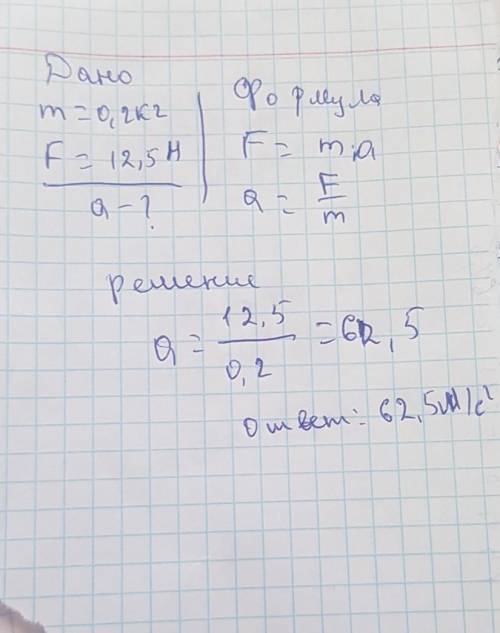 Дано
m = 0,2кг
F = 12,5 Н
a - ?
Формула
F = m·a
a = F/m
решение
a = 12,5/0,2 = 62,5
ответ: 62,5м/с²